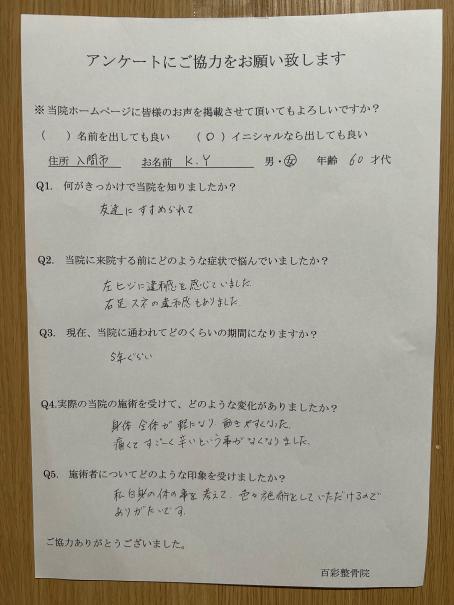 アンケートにご協力をお願い致します
※当院ホームページに皆様のお声を掲載させて頂いてもよろしいですか？
(　) 名前を出しても良い (○) イニシャルなら出しても良い
住所 入間市 お名前 K.Y 男・女 年齢 60 才代
Q1. 何がきっかけで当院を知りましたか？
友達にすすめられて
Q2. 当院に来院する前にどのような症状で悩んでいましたか？
左ヒジに違和感を感じていました。
右足スネの違和感もありました
Q3. 現在、当院に通われてどのくらいの期間になりますか？
5年ぐらい
Q4.実際の当院の施術を受けて、どのような変化がありましたか？
身体全体が軽になり動きやすくなった
痛くてすごーく辛いという事がなくなりました。
Q5. 施術者についてどのような印象を受けましたか？
私自身の体の事を考えて、色々施術としていただけるので
ありがたいです。
ご協力ありがとうございました。
百彩整骨院